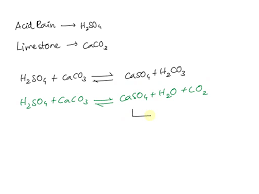 Acid Rain → H₂SO₄
Limestone → CaCO₃
H₂SO₄ + CaCO₃ ⇌ CaSO₄ + H₂CO₃
H₂SO₄ + CaCO₃ ⇌ CaSO₄ + H₂O + CO₂